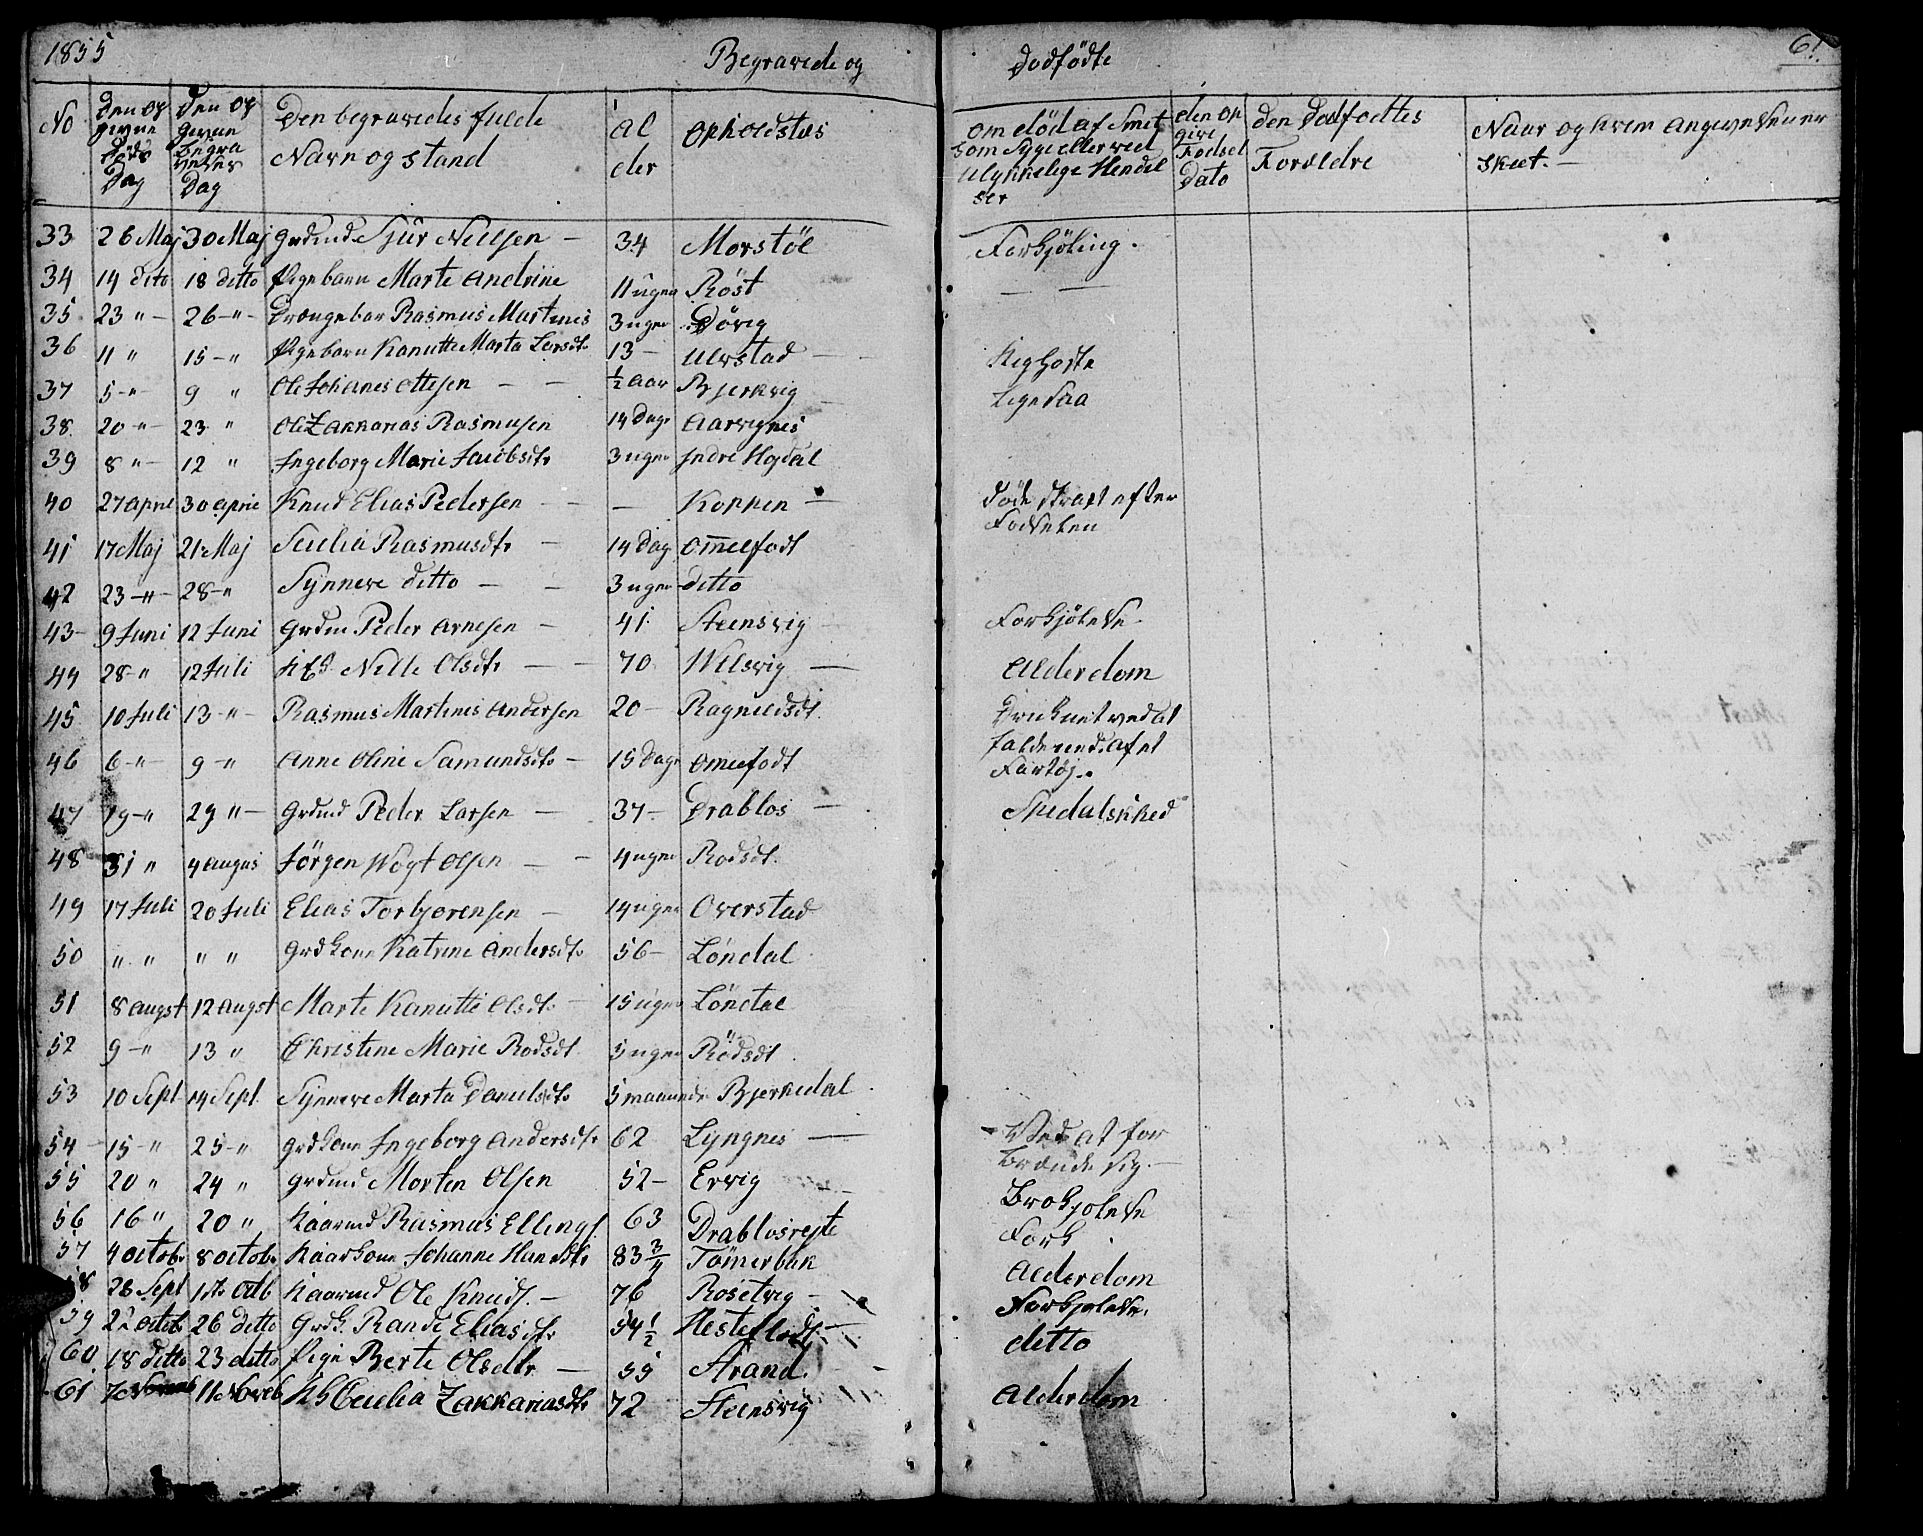 1855 Begravede og Dødfødte 61.
No Den op givne Døds Dag Den op givne Begra velses Dag Den begravedes fulde Navn og stand Al der opholdsted om død af Smit som Syge eller ved ulykkelige Hendel ser den op give Fødsel Dato den Dødfødtes Forældre Naar og hvem angivelsen er skeet. —
33 26 Maj 30 Maj Grdmd Sjur Nielsen — 34 Morstöl Forkjöling.
34 14 dito 18 ditto Pigebarn Marte Andrine 11 uger Röst — —
35 23 " — 26 — " — Drængebar Rasmus Martines 3 uger Dövig
36 11 " 15 — " Pigebarn Kanutte Marta Larsdt. 13 — Ulvstad — Kighoste
37 5 — " — 9 " Ole Johanes Ottesen — — ½ aar Bjerkvig Ligesaa
38 20 — " — 23 " Ole Zakkarias Rasmusen 14 Dage Aarvignes
39 8 " — 12 " Ingeborg Marie Jacobsdtr 3 uger Indre Hojdal
40 27 April 30 April Knud Elias Pedersen — — Koppen — Döde strax efter Fødselen
41 17 Maj 21 Maj Scelia Rasmusdtr — 14 Dag Omelfodt
42 23 — " — 28 — " Synneve ditto — — 3 uger ditto
43 — 9 Juni 12 Juni Grdm Peder Arnesen — 41 Steensvig Forkjölelse
44 28 — " 12 Juli Nille Olsdtr — — 70 Wilsvig — Alderdom
45 10 Juli 13 — " — Rasmus Martines Andersen 20 — Ragnildsdt. Druknet ved at falde ud af et Fartöj.
46 6 — " — 9 — " Anne Oline Samundsdtr — 15 Dage Omelfodt
47 19 — " 29 " — Grdmd Peder Larsen — 37 — Drablos — Spedalskhed
48 31 " 4 Augus Jörgen Wogt Olsen — — 4 uger Rodsdt.
49 17 Juli 20 Juli Elias Torbjorensen — 14 uger Overstad
50 " " " " Grdkone Katrine Andersdtr 56 — Löndal
51 8 Augst 12 Augst Marte Kanutte Olsdt. — 15 uger Löndal
52 9 — " 13 " Christine Marie Rodsdt. 5 uger Rödsdt.
53 10 Sept 14 Sept. Synneve Marta Danielsdtr 5 maaneder Bjerkedal
54 — 15 — " 25 — " Grdkone Ingeborg Andersdtr 62 Lyngnes — Ved at for brænde sig. —
55 20 " 24 " Grdmd Morten Olsen 52 — Ervig Brokjolelse
56 16 " 20 " Kaarmd Rasmus Ellings. 63 Drablosrejte Fork
57 4 Octobr 8 Octobr Kaarkone Johanne Hansdtr 83 ¾ Tömerbak Alderdom
58 28 Sept 1ste Octb Kaarmd Ole Knuds. — 76 Rosetvig — Forkjolelse.
59 22 Octob 26 ditto Grdk. Rande Eliasdtr 54 ½ Hesteflodt. — ditto
60 18 ditto 23 ditto Pige Berte Olsdtr — 55 Strand.
61 7 Novemb 11 Noveb Cecilia Zakkariasdtr 72 Steensvig Alderdom